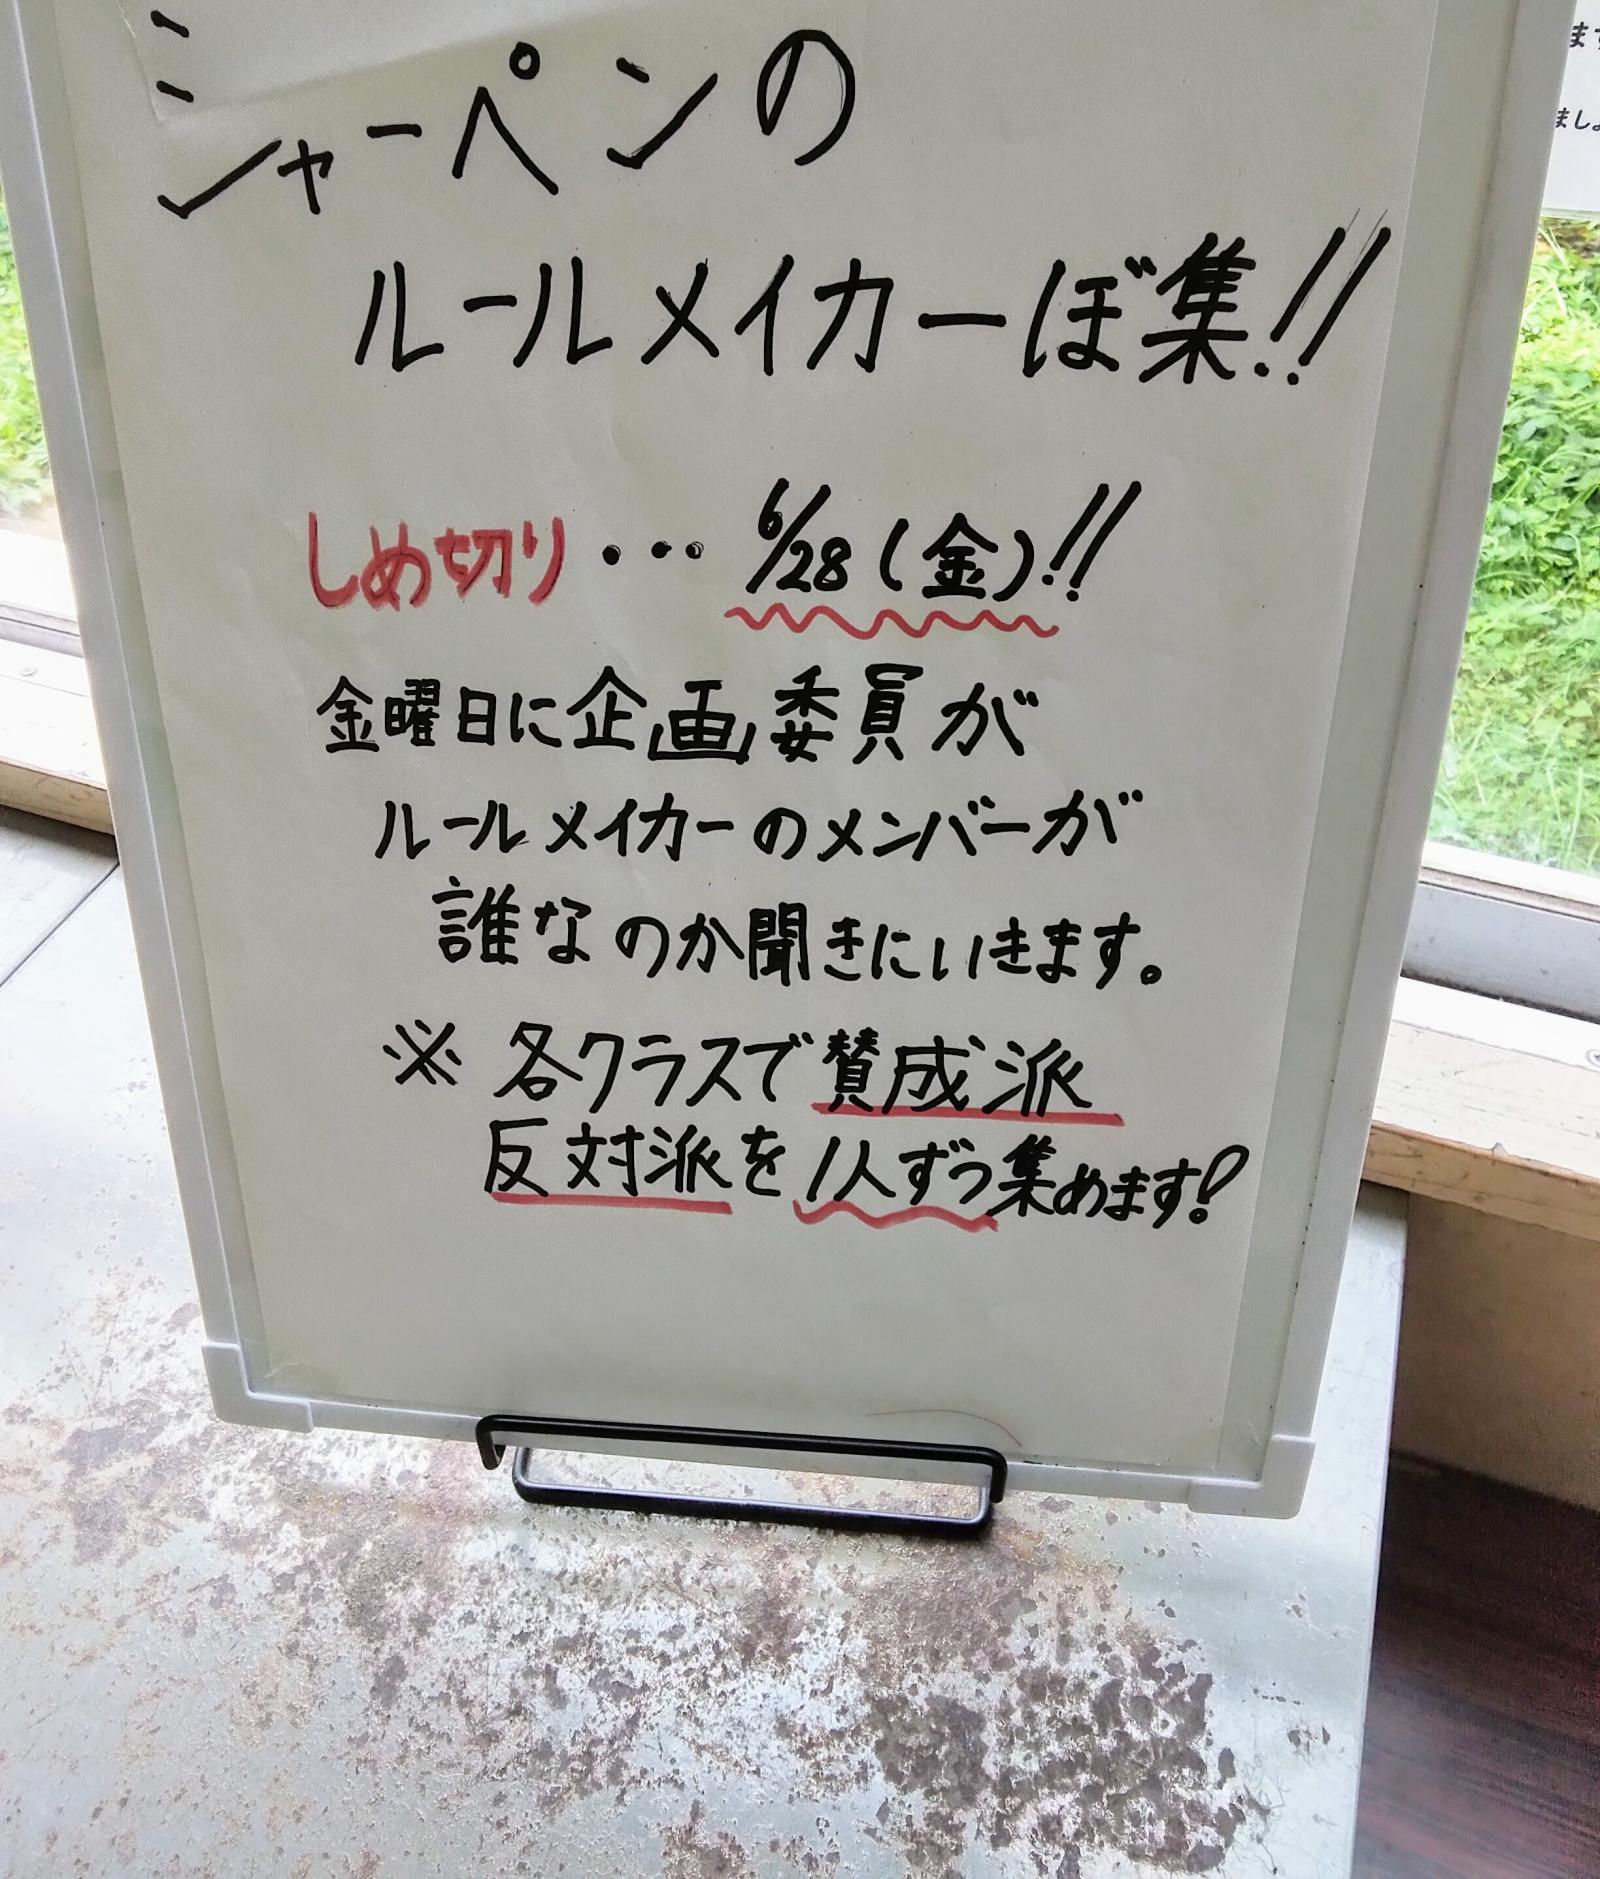 シャーペンの
ルールメイカーぼ集!!
しめ切り・・・6/28(金)!!
金曜日に企画委員が
ルールメイカーのメンバーが
誰なのか聞きにいきます。
※各クラスで賛成派
反対派を1人ずつ集めます!